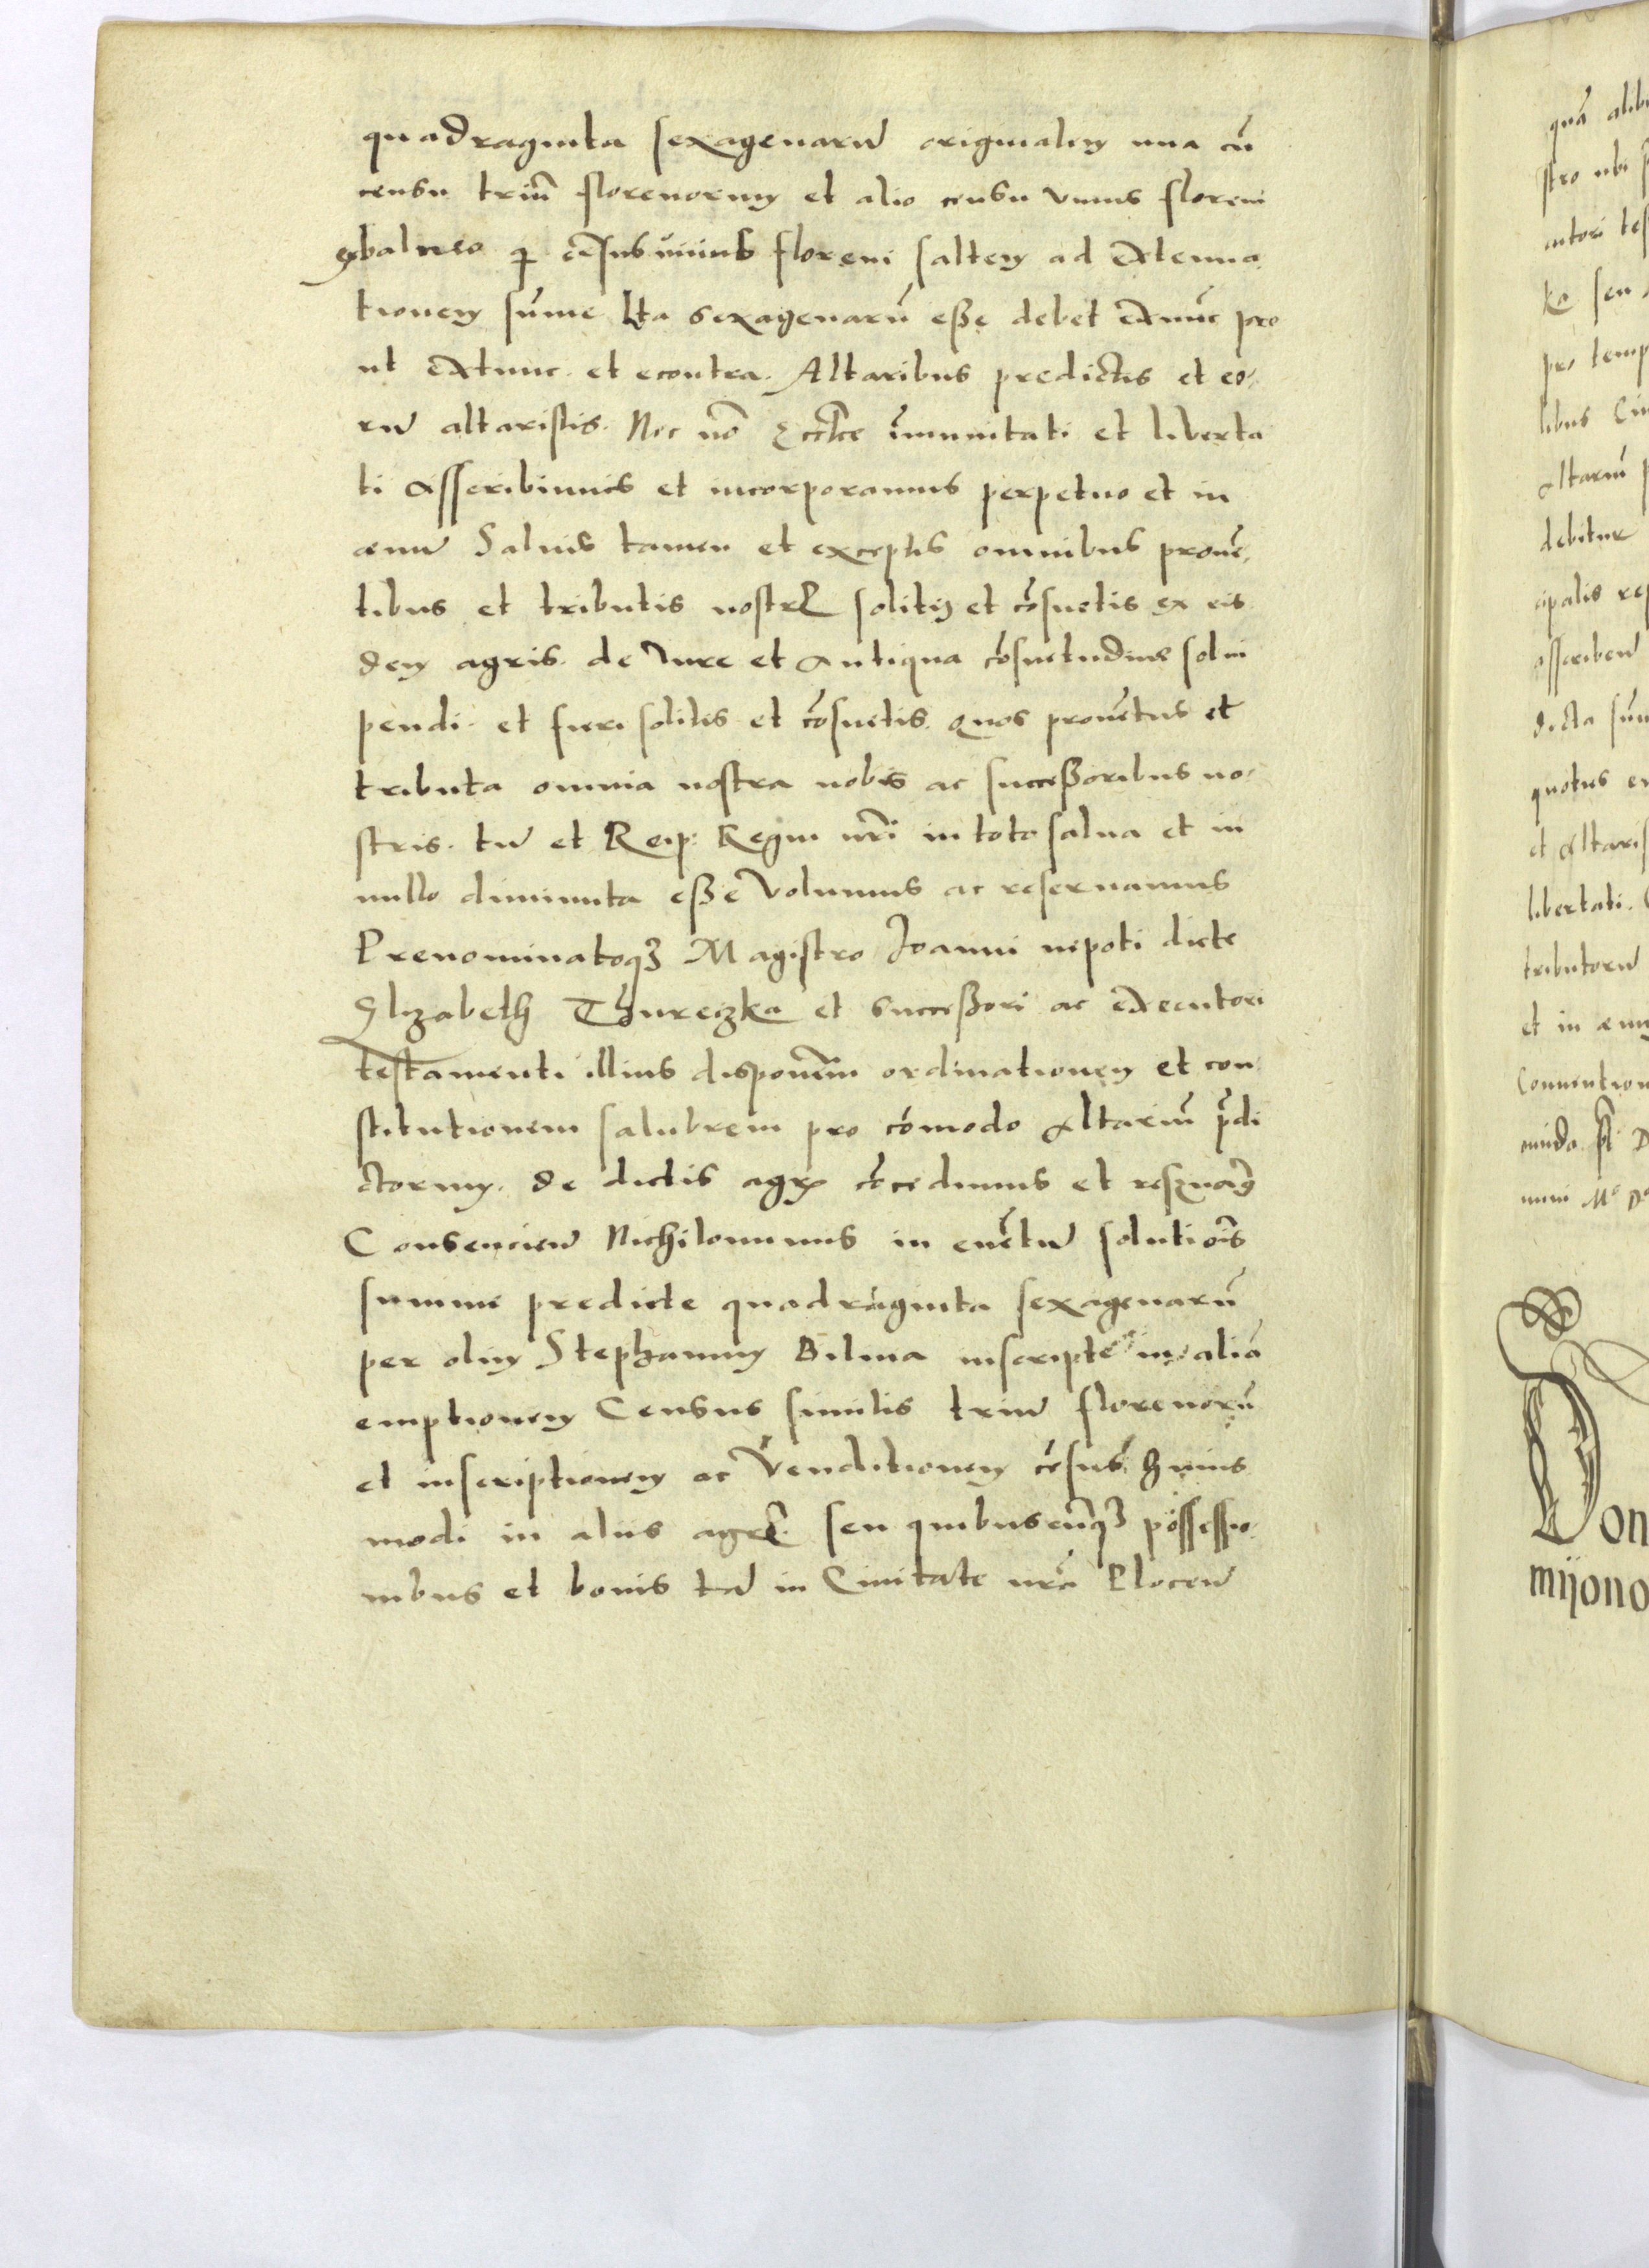 quadraginta sexagenarũ originalem una cũ
censu triũ florenorum et alio censu vnius floreni
ex balneo q̃ cẽsus vnius floreni saltem ad extenua
tionem sũme lta sexagenarũ esse debet exnũc pro
ut extunc. et econtra. Altaribus predictis et eo-
rũ altaristis. Nec nõ Eccl̃ie ĩmunitati et liberta
ti asscribimus et incorporamus perpetuo et in
aeuũ Saluis tamen et exceptis omnibus prouẽ
tibus et tributis nostris solitis et cõsuetis ex eis
dem agris. de Iure et antiqua cõsuetudine solui
pendi. et fieri solitis et cõsuetis. Quos prouẽtus et
tributa omnia nostra nobis ac successoribus no-
stris. tũ et Reip: Regni nr̃i in toto salua et in
nullo diminuta esse volumus ac reseruamus
Prenominatoqȝ Magistro Joanni nepoti dicte
Elizabeth Thureczka et successori ac executori
testamenti illius disponẽm ordinationem et con
stitutionem salubrem pro cõmodo altariũ p̃di
ctorum. de dictis agr̃ cõcedimus et reseruam9
Consencieñ Nichilominus in euẽtũ solutiõis
summe predicte quadraginta sexagenarũ
per olim Stephanum Bilina inscripte in aliã
emptionem Census similis triũ florenorũ
et inscriptionem ac Venditionem cẽsus huius
modi in aliis agr̃. seu quibuscũqȝ possessio-
nibus et bonis tã in Ciuitate nr̃a Ploceñ
quã alib
stro ubi
cutori tes
ka seu
pro temp
libus Ciu
altariũ p
debitur
cipalis re
asscribeñ
dicta sũm
quotus e
et altaris
libertati.
tributorũ
et in aeuũ
Conuention
Don
mijono